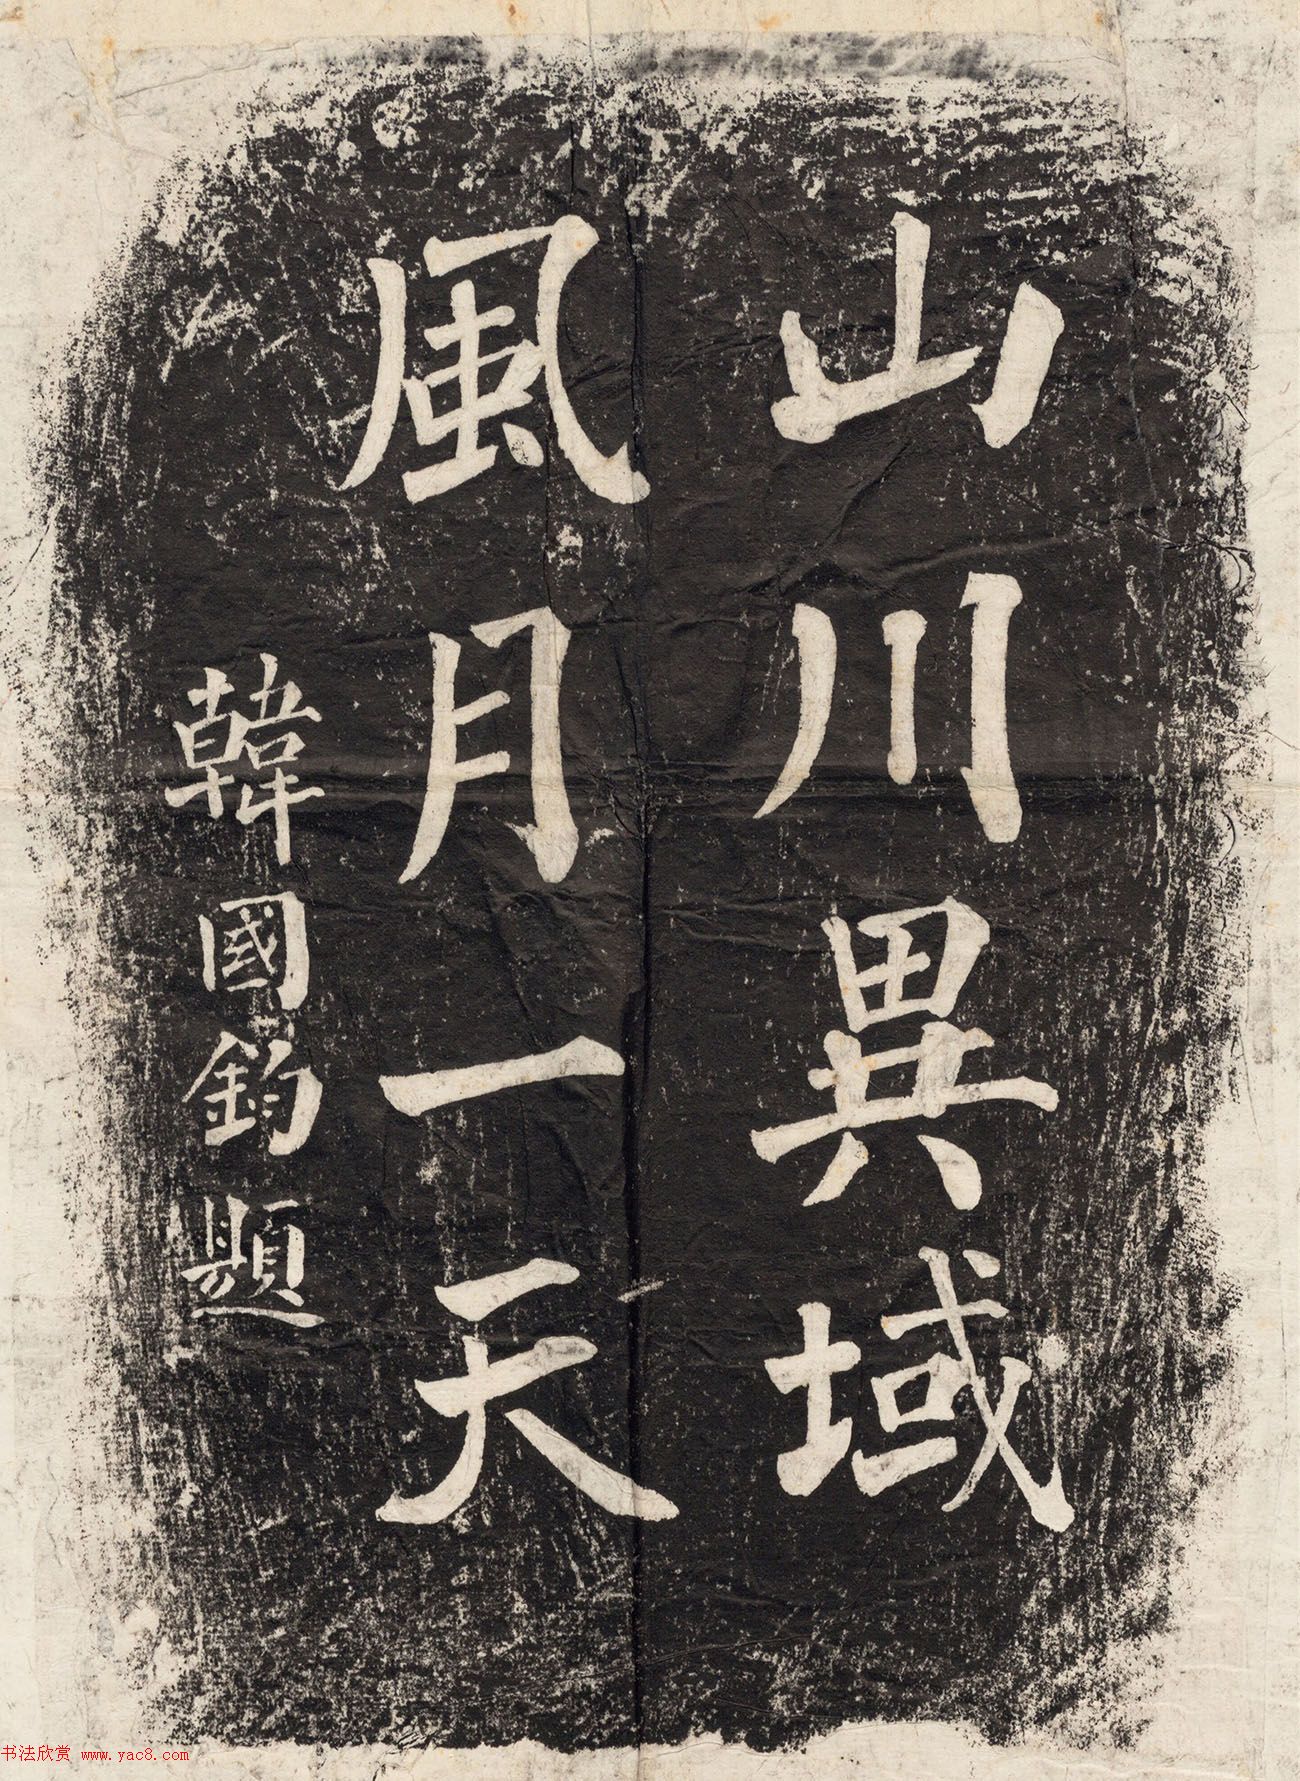 山川異域
風月一天
韓國鈞題
书法欣赏 www.yac8.com